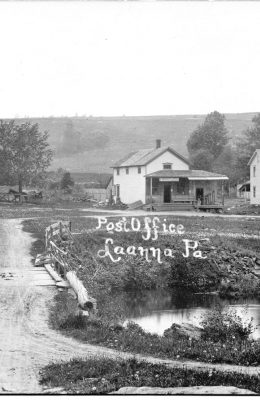 Post Office
Laanna Pa